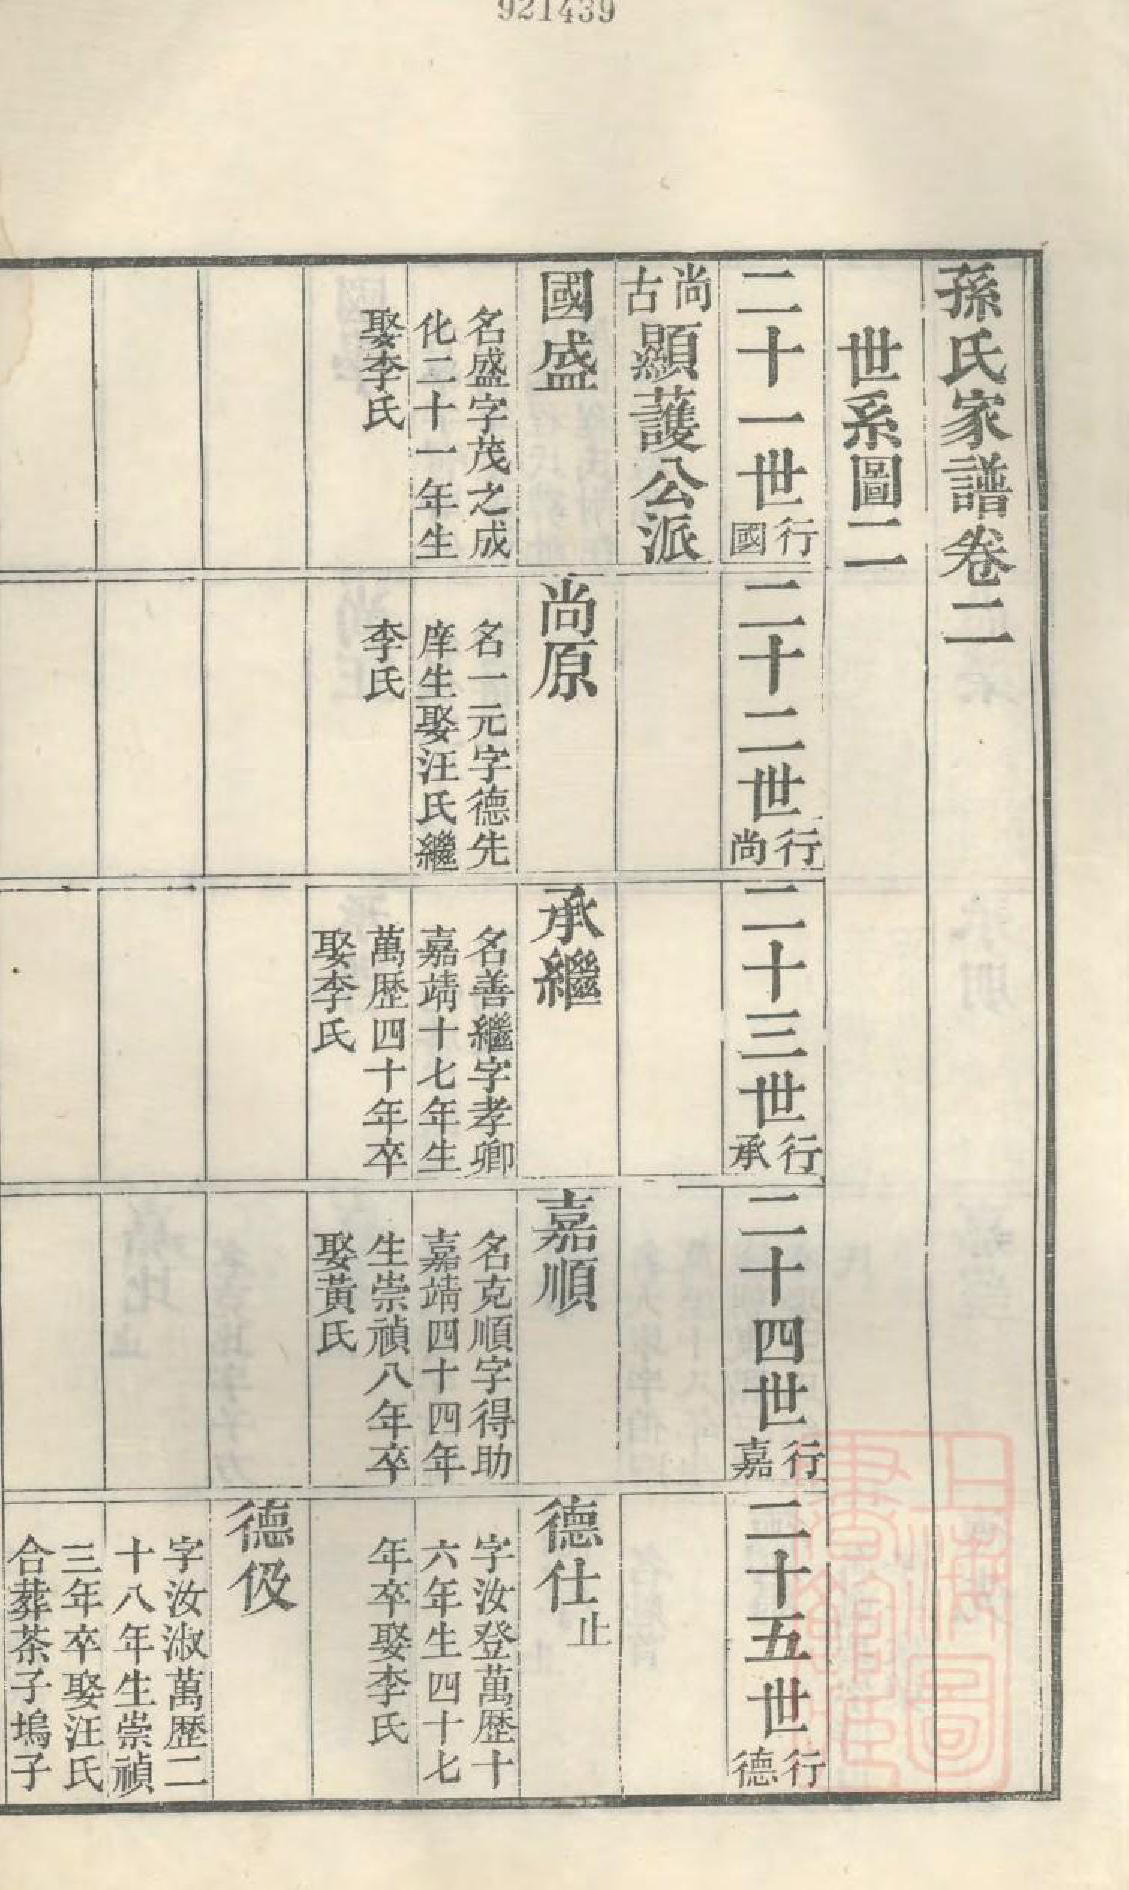 921439
孫氏家譜卷二
世系圖二
二十一世國行
尚古顯護公派
國盛
名盛字茂之成
化二十一年生
娶李氏
二十二世尚行
尚原
名一元字德先
庠生娶汪氏繼
李氏
二十三世承行
承繼
名善繼字孝卿
嘉靖十七年生
萬歷四十年卒
娶李氏
二十四世嘉行
嘉順
名克順字得助
嘉靖四十四年
生崇禎八年卒
娶黃氏
二十五世德行
德仕止
字汝登萬歷十
六年生四十七
年卒娶李氏
德伋
字汝淑萬歷二
十八年生崇禎
三年卒娶汪氏
合葬茶子塢子